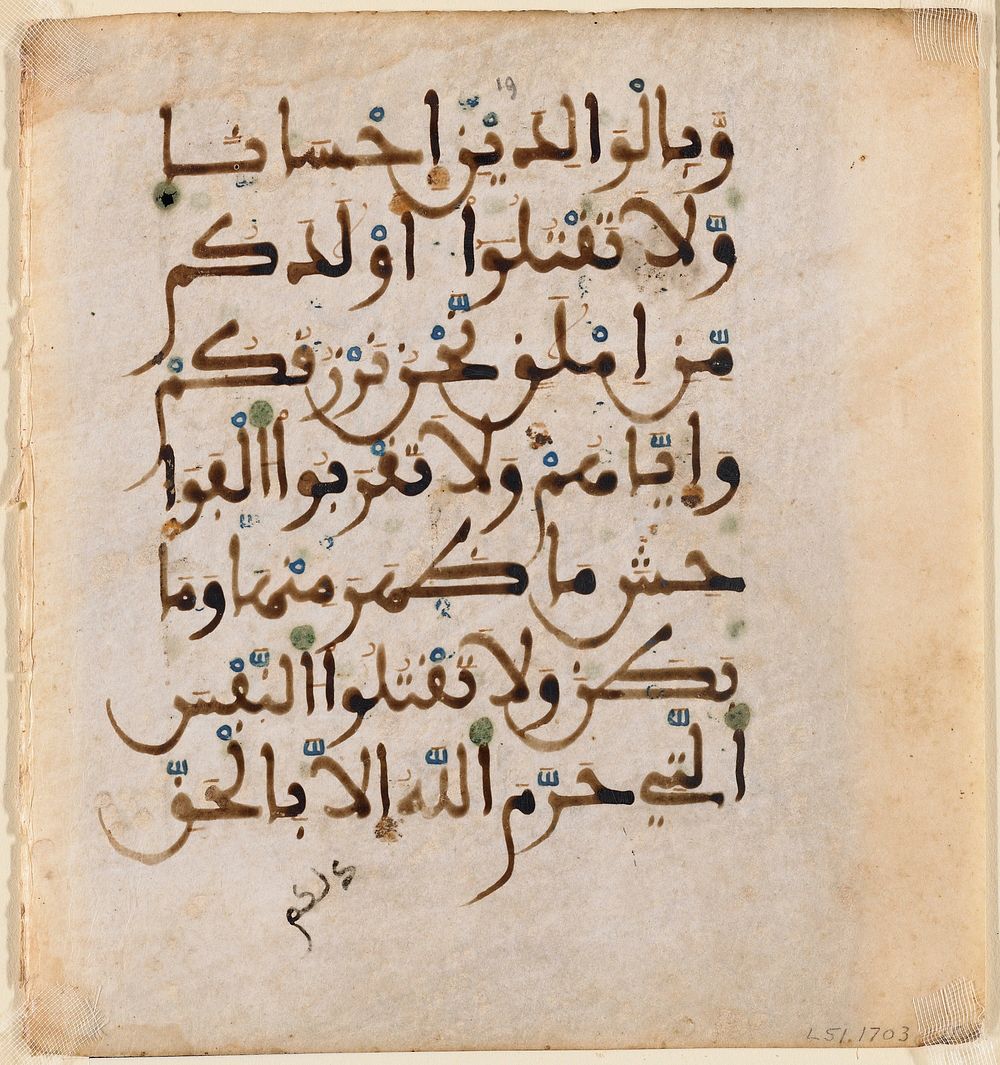 19
وَبِالْوَالِدَيْنِ إِحْسَانًا
وَّلَا تَقْتُلُوا أَوْلَدَكُم
مِّنِ امْلَقٍ نَّحْنُ نَرْزُقُكُمْ
وَإِيَّاهُمْ وَلَا تَقْرَبُوا الْفَوَا
حِشَ مَا ظَهَرَ مِنْهَا وَمَا
بَطَنَ وَلَا تَقْتُلُوا النَّفْسَ
الَّتِي حَرَّمَ اللَّهُ إِلَّا بِالْحَقِّ
ذلكم
L51.1703